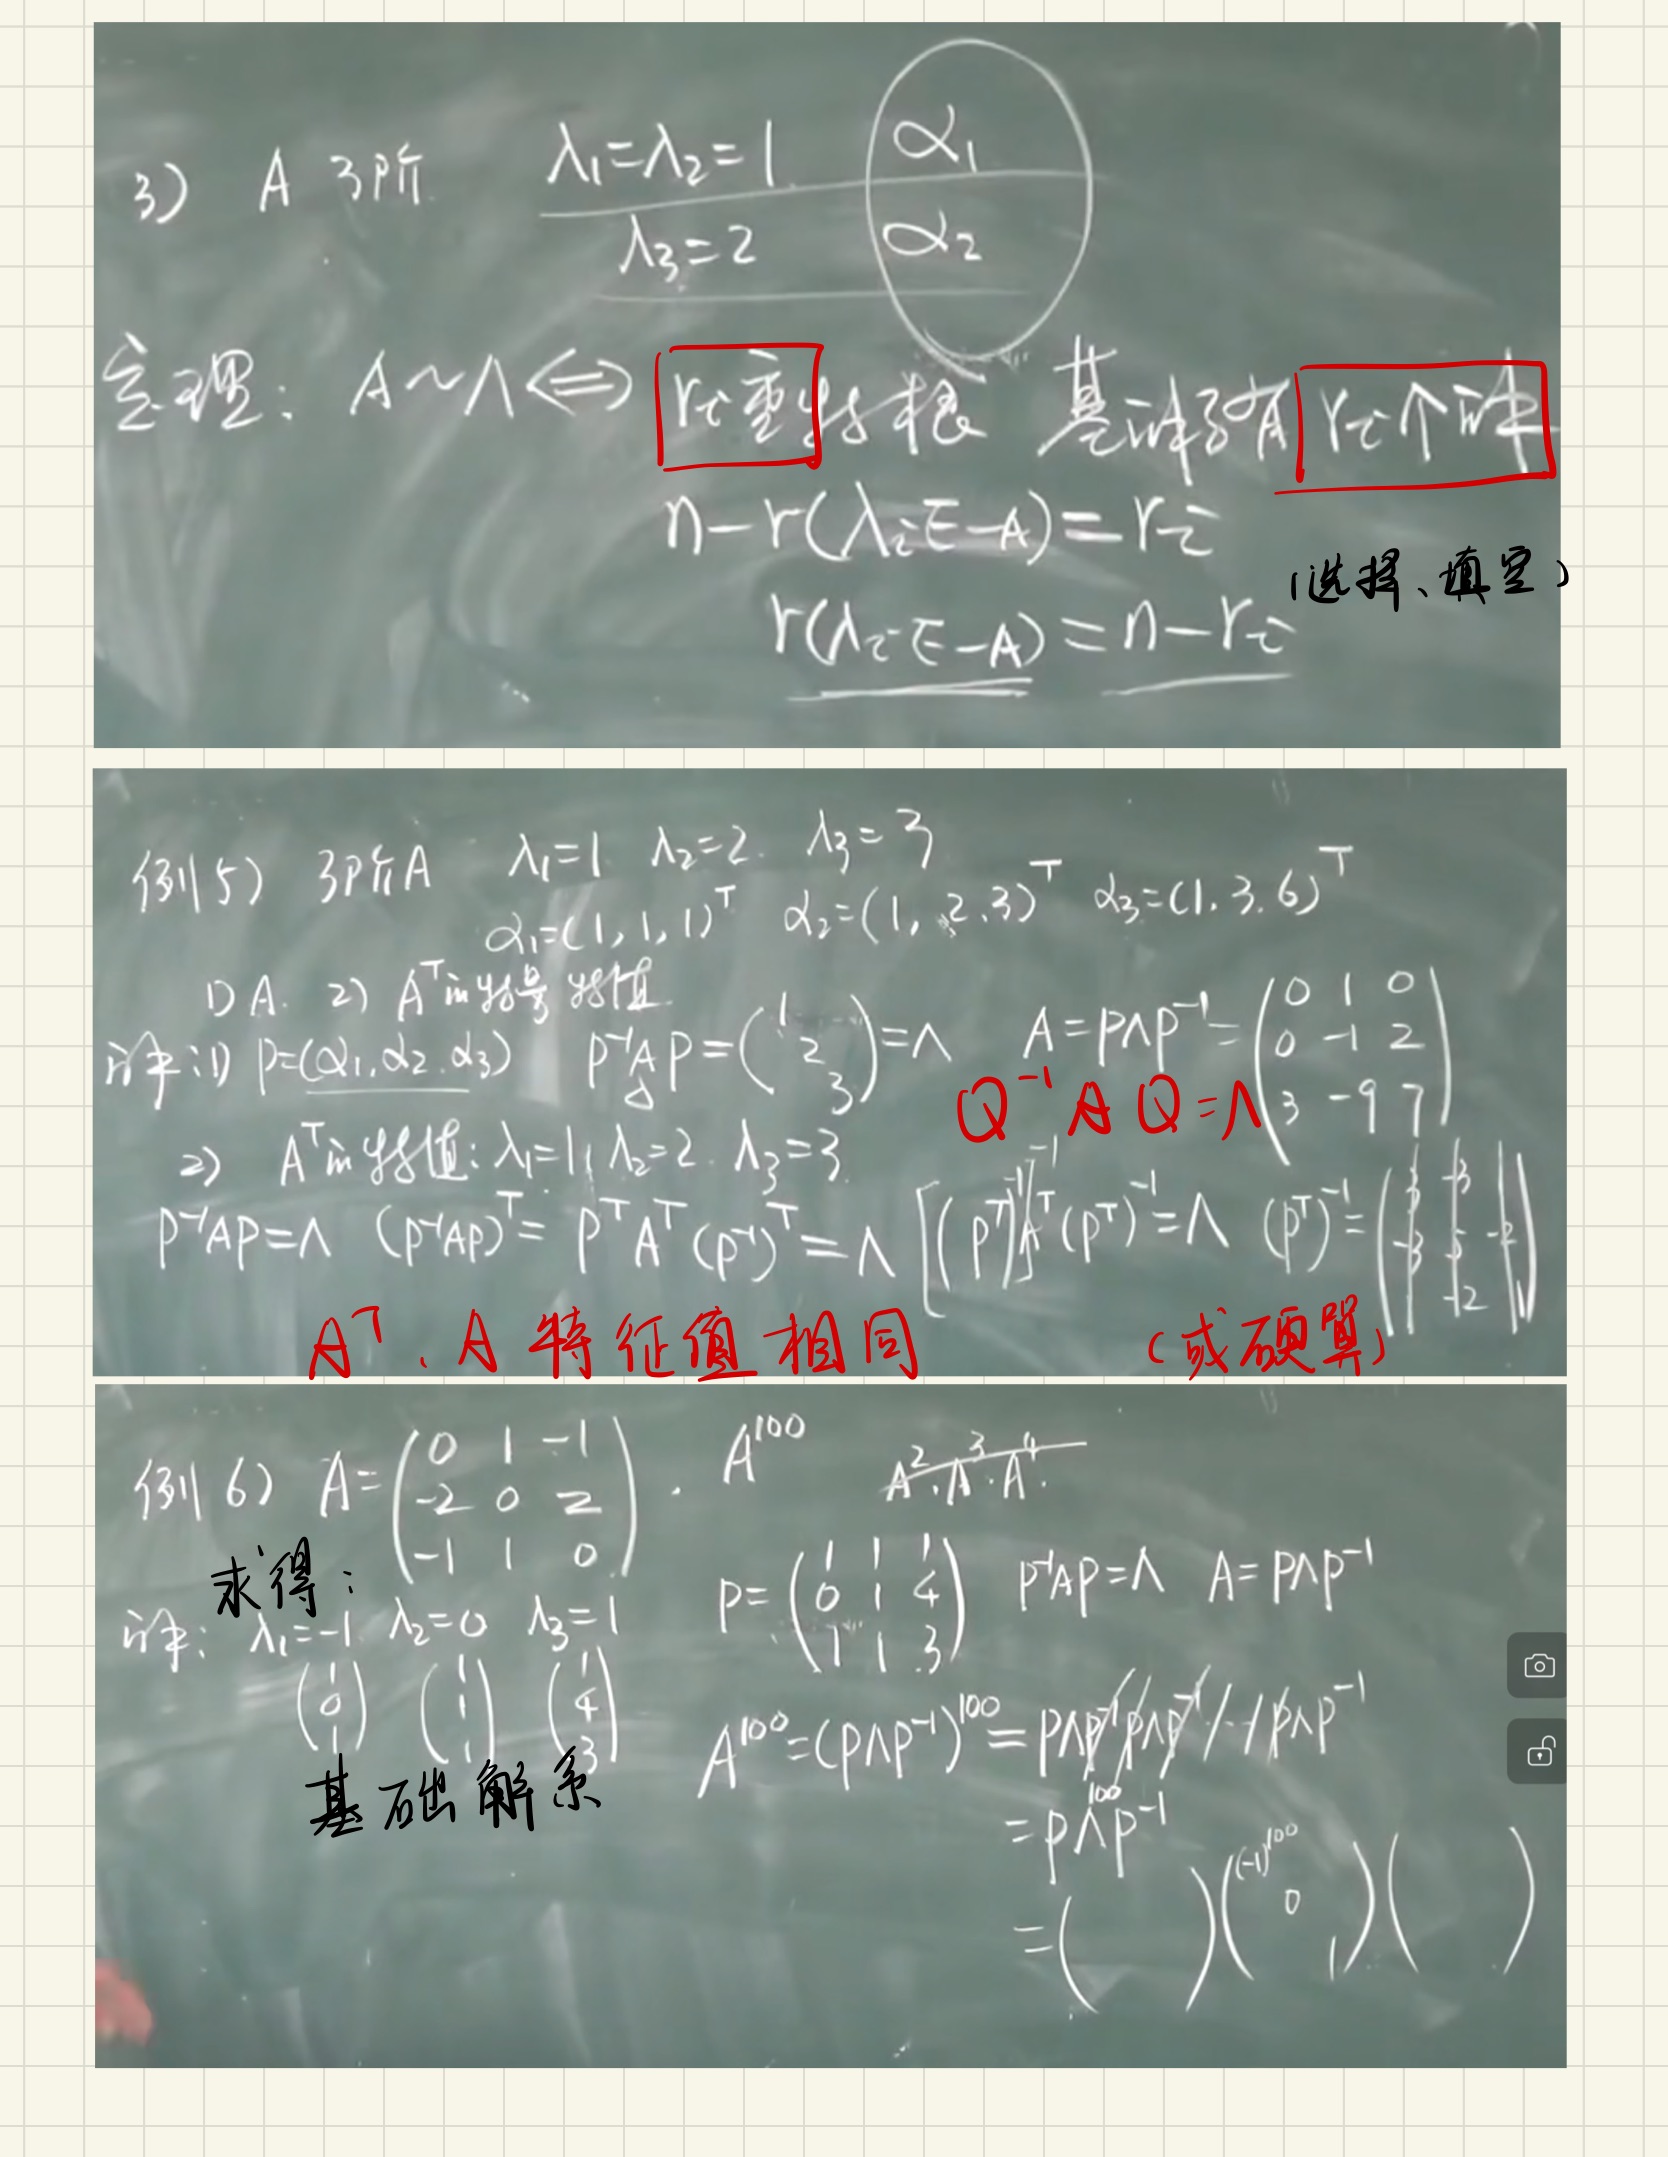 3) A 3阶 λ₁=λ₂=1 α₁
λ₃=2 α₂
定理: A~Λ⟺ rᵢ重特根 基础解系有 rᵢ个解
n-r(λᵢE-A)=rᵢ
(选择、填空)
r(λᵢE-A)=n-rᵢ
例5) 3阶A λ₁=1 λ₂=2. λ₃=3
α₁=(1,1,1)ᵀ α₂=(1,2,3)ᵀ α₃=(1.3.6)ᵀ
1) A. 2) Aᵀ的特量 特值
解:1) P=(α₁,α₂,α₃) P⁻¹AP=(1 2 3)=Λ A=PΛP⁻¹=(0 1 0
0 -1 2
3 -9 7)
Q⁻¹AQ=Λ
2) Aᵀ的特值: λ₁=1, λ₂=2. λ₃=3.
P⁻¹AP=Λ (P⁻¹AP)ᵀ=PᵀAᵀ(P⁻¹)ᵀ=Λ [(Pᵀ)⁻¹]⁻¹Aᵀ(Pᵀ)⁻¹=Λ (Pᵀ)⁻¹=(3 -3 1
-3 5 -2
1 -2 1)
Aᵀ、A特征值相同 (或硬算)
例6) A=(0 1 -1
-2 0 2
-1 1 0). A¹⁰⁰ A².A³.A⁴.
求得:
解: λ₁=-1 λ₂=0 λ₃=1
(1 0 1) (1 1 1) (1 4 3)
基础解系
P=(1 1 1
0 1 4
1 1 3) P⁻¹AP=Λ A=PΛP⁻¹
A¹⁰⁰=(PΛP⁻¹)¹⁰⁰=PΛP⁻¹PΛP⁻¹···PΛP⁻¹
=PΛ¹⁰⁰P⁻¹
=( )((-1)¹⁰⁰ 0 1)( )